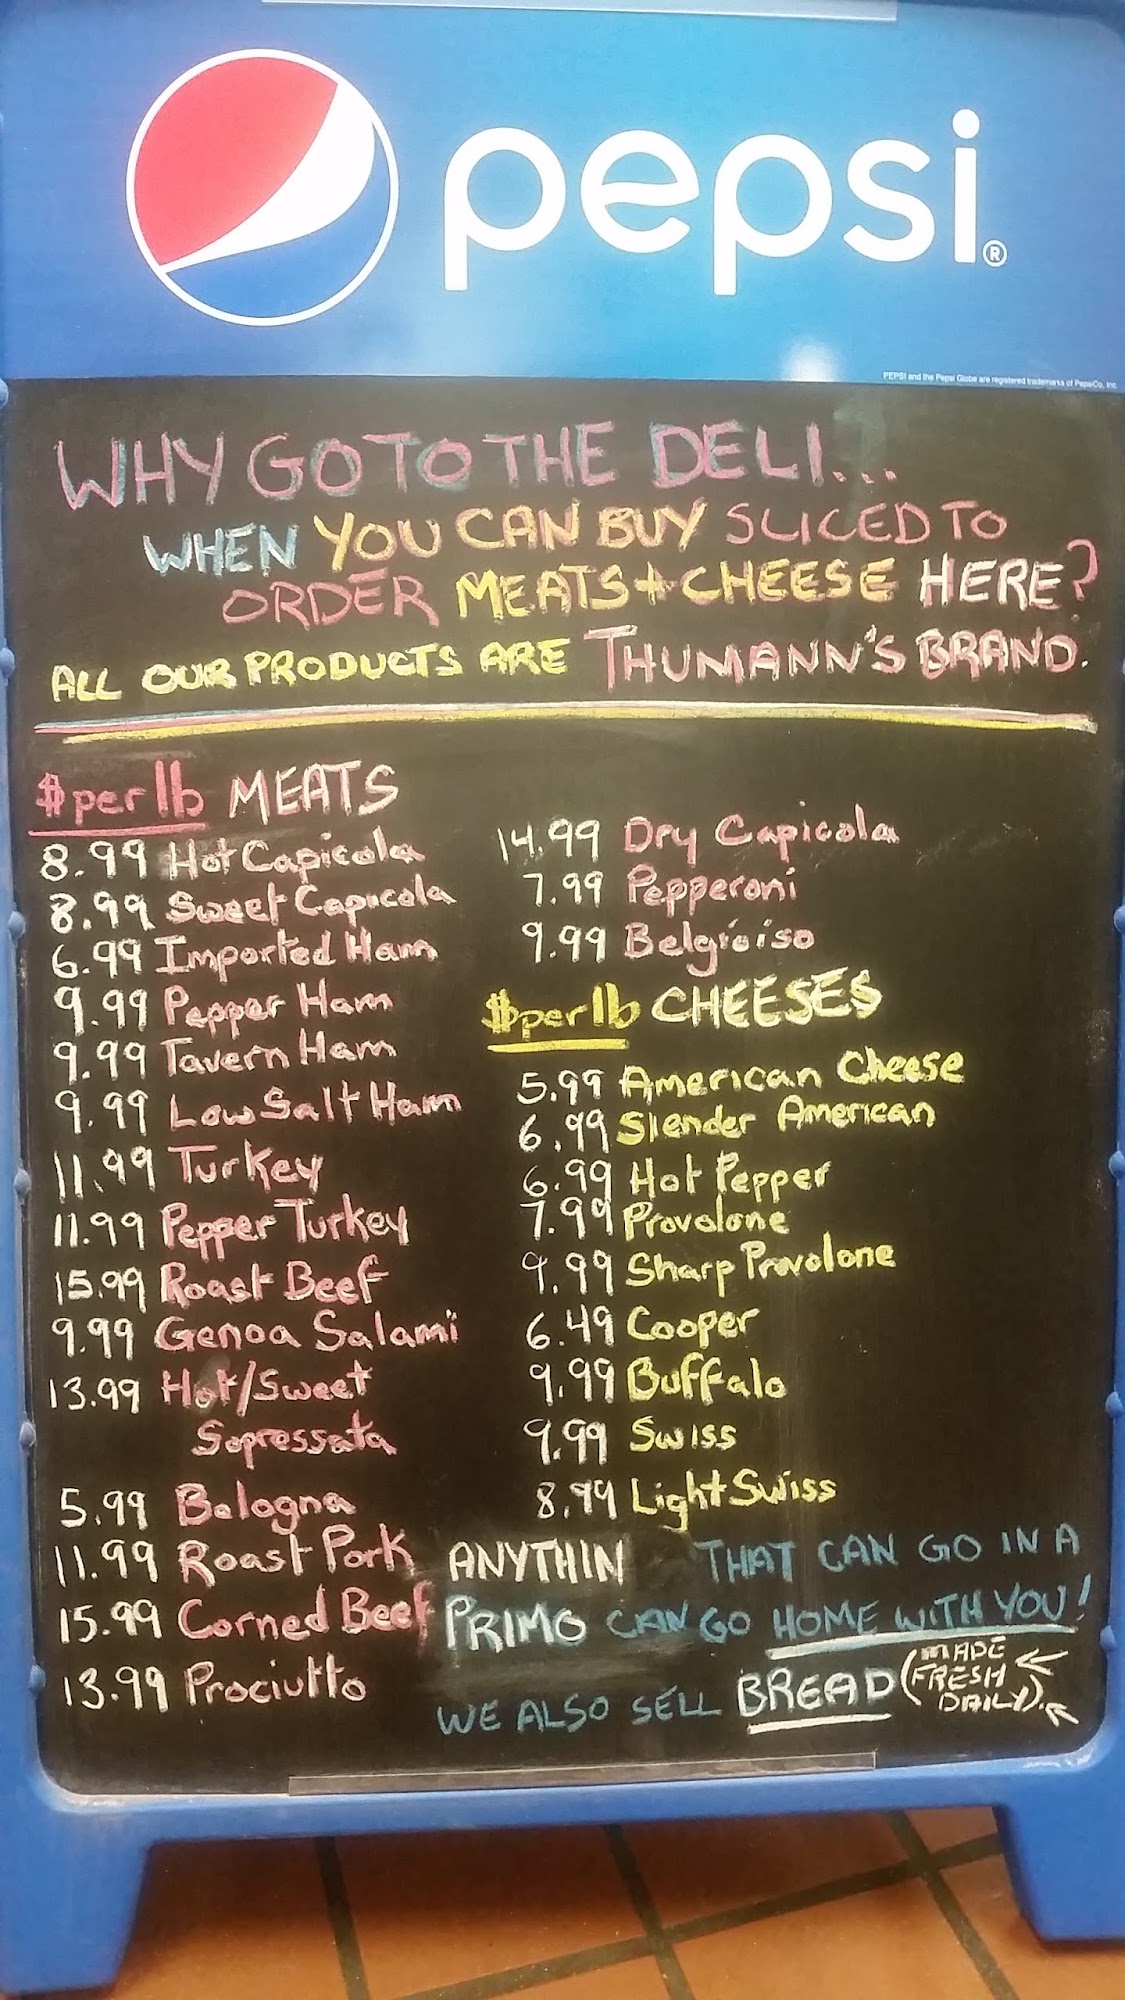 pepsi®
PEPSI and the Pepsi Globe are registered trademarks of PepsiCo, Inc.
WHY GO TO THE DELI...
WHEN YOU CAN BUY SLICED TO
ORDER MEATS + CHEESE HERE?
ALL OUR PRODUCTS ARE THUMANN'S BRAND.
$per lb MEATS
8.99 Hot Capicola
8.99 Sweet Capicola
6.99 Imported Ham
9.99 Pepper Ham
9.99 Tavern Ham
9.99 Low Salt Ham
11.99 Turkey
11.99 Pepper Turkey
15.99 Roast Beef
9.99 Genoa Salami
13.99 Hot/Sweet
Sopressata
5.99 Bologna
11.99 Roast Pork
15.99 Corned Beef
13.99 Prociutto
14.99 Dry Capicola
7.99 Pepperoni
9.99 Belgioiso
$per lb CHEESES
5.99 American Cheese
6.99 Slender American
6.99 Hot Pepper
7.99 Provolone
9.99 Sharp Provolone
6.49 Cooper
9.99 Buffalo
9.99 Swiss
8.99 Light Swiss
ANYTHIN THAT CAN GO IN A
PRIMO CAN GO HOME WITH YOU!
WE ALSO SELL BREAD (MADE
FRESH
DAILY).